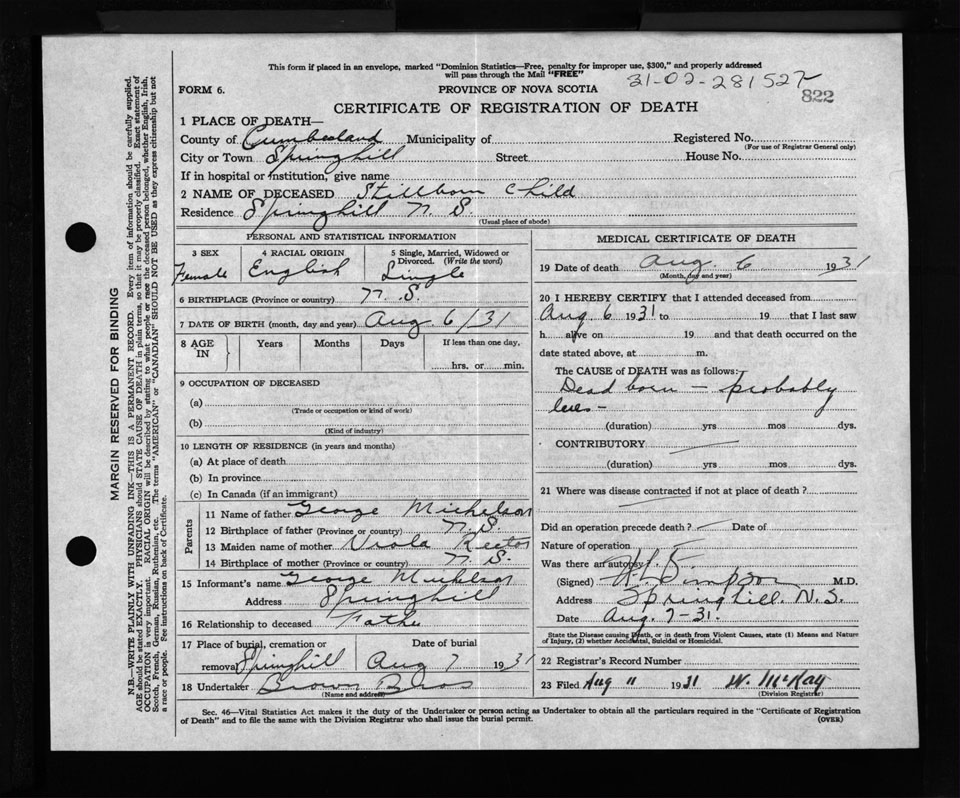 This form if placed in an envelope, marked "Dominion Statistics—Free, penalty for improper use, $300," and properly addressed
will pass through the Mail "FREE"
31-02-281527
822
FORM 6.
PROVINCE OF NOVA SCOTIA
CERTIFICATE OF REGISTRATION OF DEATH
1 PLACE OF DEATH—
County of Cumberland Municipality of Registered No.
(For use of Registrar General only)
City or Town Springhill Street House No.
If in hospital or institution, give name
2 NAME OF DECEASED Stillborn Child
Residence Springhill N. S.
(Usual place of abode)
PERSONAL AND STATISTICAL INFORMATION
3 SEX 4 RACIAL ORIGIN 5 Single, Married, Widowed or
Divorced. (Write the word)
Female English Single
6 BIRTHPLACE (Province or country) N. S.
7 DATE OF BIRTH (month, day and year) Aug. 6/31
8 AGE IN Years Months Days If less than one day,
hrs. or min.
9 OCCUPATION OF DECEASED
(a)
(Trade or occupation or kind of work)
(b)
(Kind of industry)
10 LENGTH OF RESIDENCE (in years and months)
(a) At place of death
(b) In province
(c) In Canada (if an immigrant)
Parents
11 Name of father George Michelson
12 Birthplace of father (Province or country) N. S.
13 Maiden name of mother Viola Rector
14 Birthplace of mother (Province or country) N. S.
15 Informant's name George Michelson
Address Springhill
16 Relationship to deceased Father
17 Place of burial, cremation or Date of burial
removal Springhill Aug 7 1931
18 Undertaker Brown Bros
(Name and address)
MEDICAL CERTIFICATE OF DEATH
19 Date of death Aug. 6 1931
(Month, day and year)
20 I HEREBY CERTIFY that I attended deceased from
Aug. 6 1931 to 19 that I last saw
h alive on 19 and that death occurred on the
date stated above, at m.
The CAUSE of DEATH was as follows:
Dead born — probably
lues -
(duration) yrs mos dys.
CONTRIBUTORY
(duration) yrs mos dys.
21 Where was disease contracted if not at place of death?
Did an operation precede death? Date of
Nature of operation
Was there an autopsy
(Signed) Simpson M.D.
Address Springhill. N.S.
Date Aug. 7-31.
State the Disease causing Death, or in death from Violent Causes, state (1) Means and Nature
of Injury, (2) whether Accidental, Suicidal or Homicidal.
22 Registrar's Record Number
23 Filed Aug 11 1931 W. McKay
(Division Registrar)
Sec. 46—Vital Statistics Act makes it the duty of the Undertaker or person acting as Undertaker to obtain all the particulars required in the "Certificate of Registration
of Death" and to file the same with the Division Registrar who shall issue the burial permit. (OVER)
MARGIN RESERVED FOR BINDING
N.B.—WRITE PLAINLY WITH UNFADING INK—THIS IS A PERMANENT RECORD. Every item of information should be carefully supplied.
AGE should be stated EXACTLY. PHYSICIANS should STATE CAUSE OF DEATH in plain terms, so that it may be properly classified. Exact statement of
OCCUPATION is very important. RACIAL ORIGIN will be described by stating to what people or race the deceased person belonged, whether English, Irish,
Scotch, French, German, Russian, Ruthenian, etc. The terms "AMERICAN" or "CANADIAN" SHOULD NOT BE USED as they express citizenship but not
a race or people. See instructions on back of Certificate.